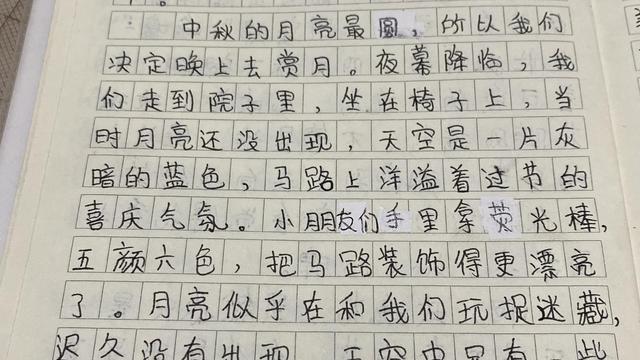 中秋的月亮最圆，所以我们
决定晚上去赏月。夜幕降临，我
们走到院子里，坐在椅子上，当
时月亮还没出现，天空是一片灰
暗的蓝色，马路上洋溢着过节的
喜庆气氛。小朋友们手里拿荧光棒，
五颜六色，把马路装饰得更漂亮
了。月亮似乎在和我们玩捉迷藏，
迟久没有出现 天空中只有 些